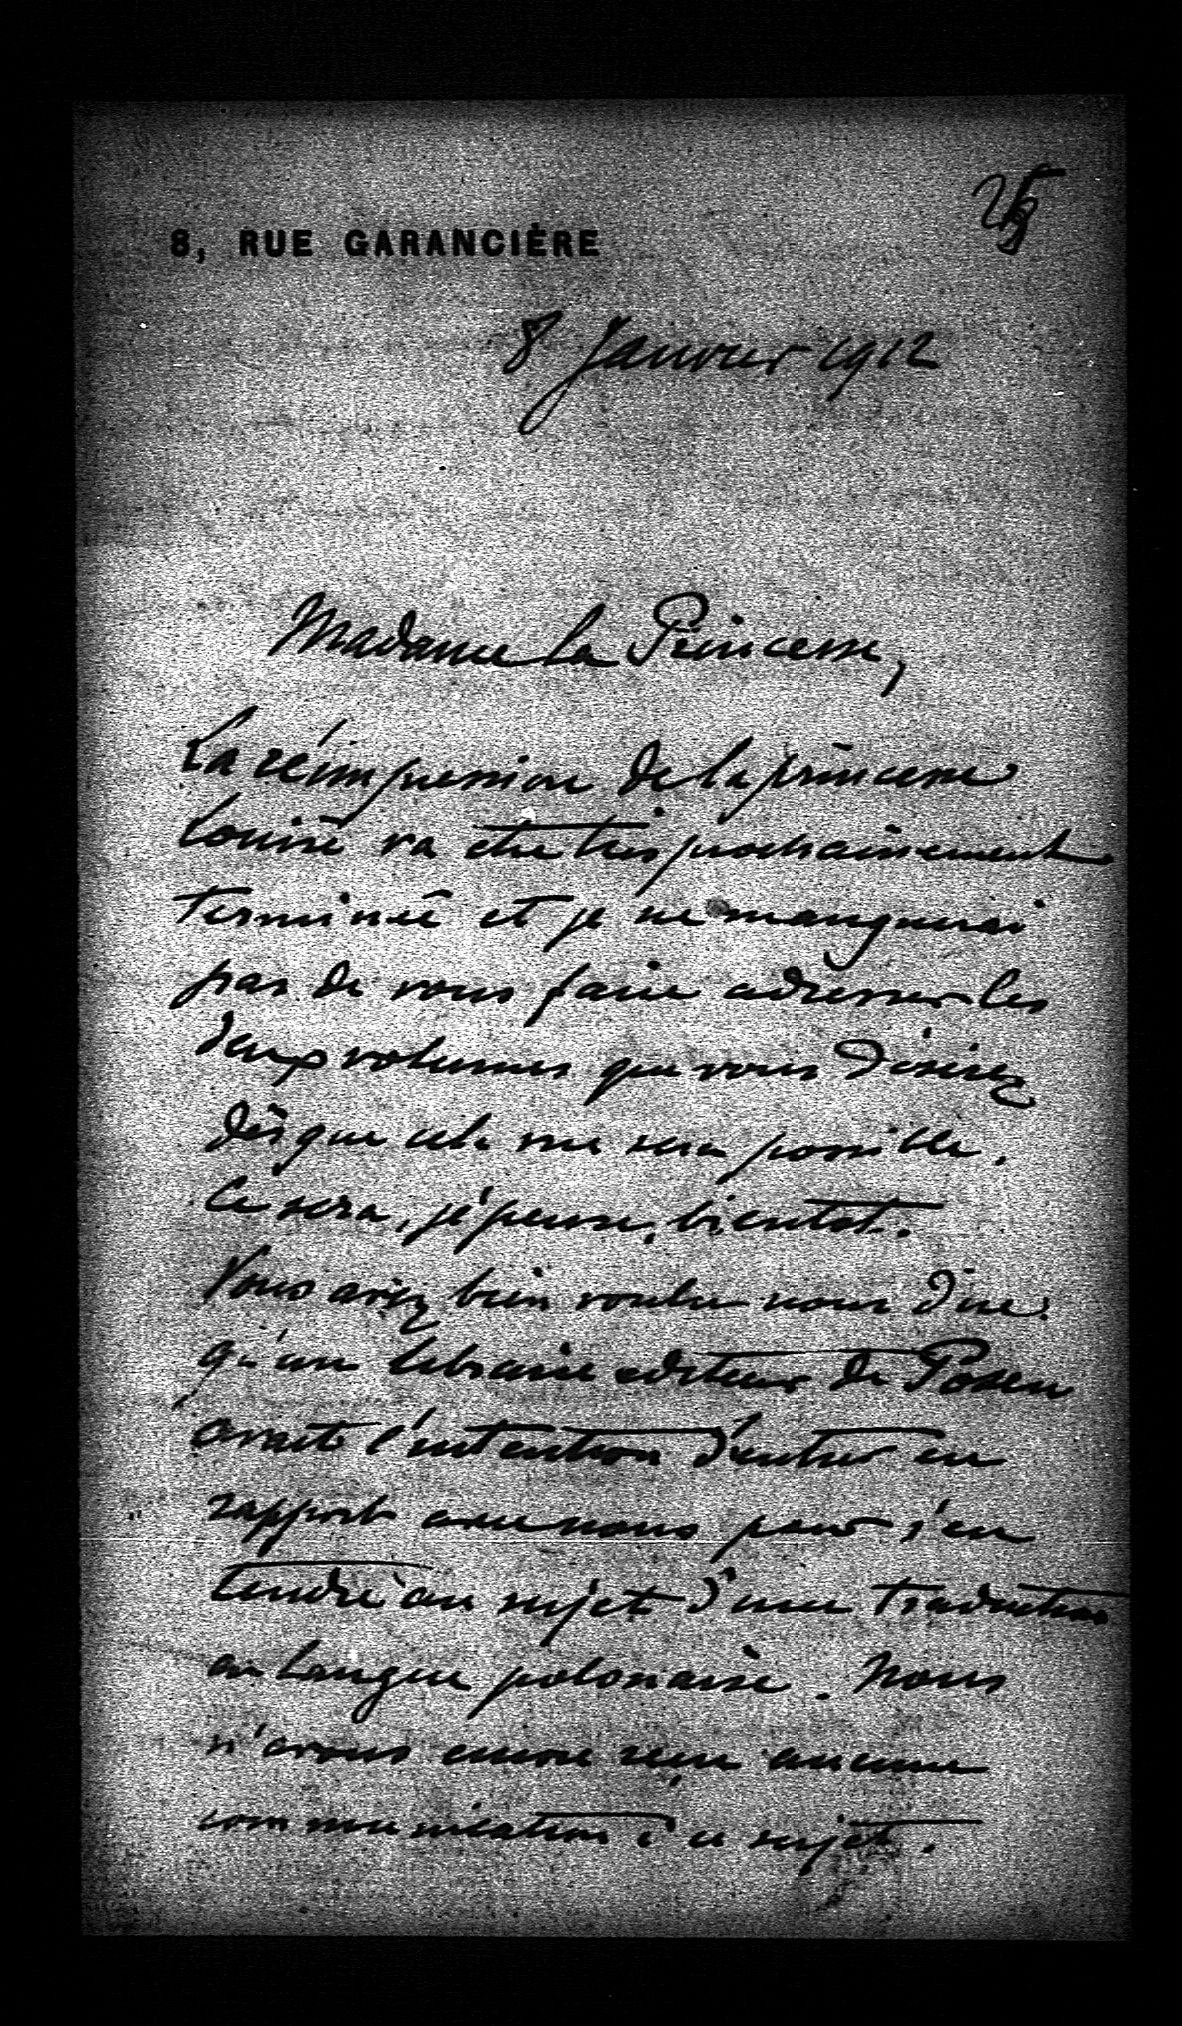 8, RUE GARANCIÈRE
8 Janvier 1912
Madame la Princesse,
La réimpression de la princesse
Louise va être très prochainement
terminée et je ne manquerai
pas de vous faire adresser les
deux volumes que vous désirez
dès que cela me sera possible.
Ce sera, je pense, bientot.
Vous aviez bien voulu nous dire
qu'un libraire editeur de Posen
avait l'intention d'entrer en
rapport avec nous pour s'en
tendre au sujet d'une traduction
en langue polonaise. Nous
n'avons encore reçu aucune
communication à ce sujet.